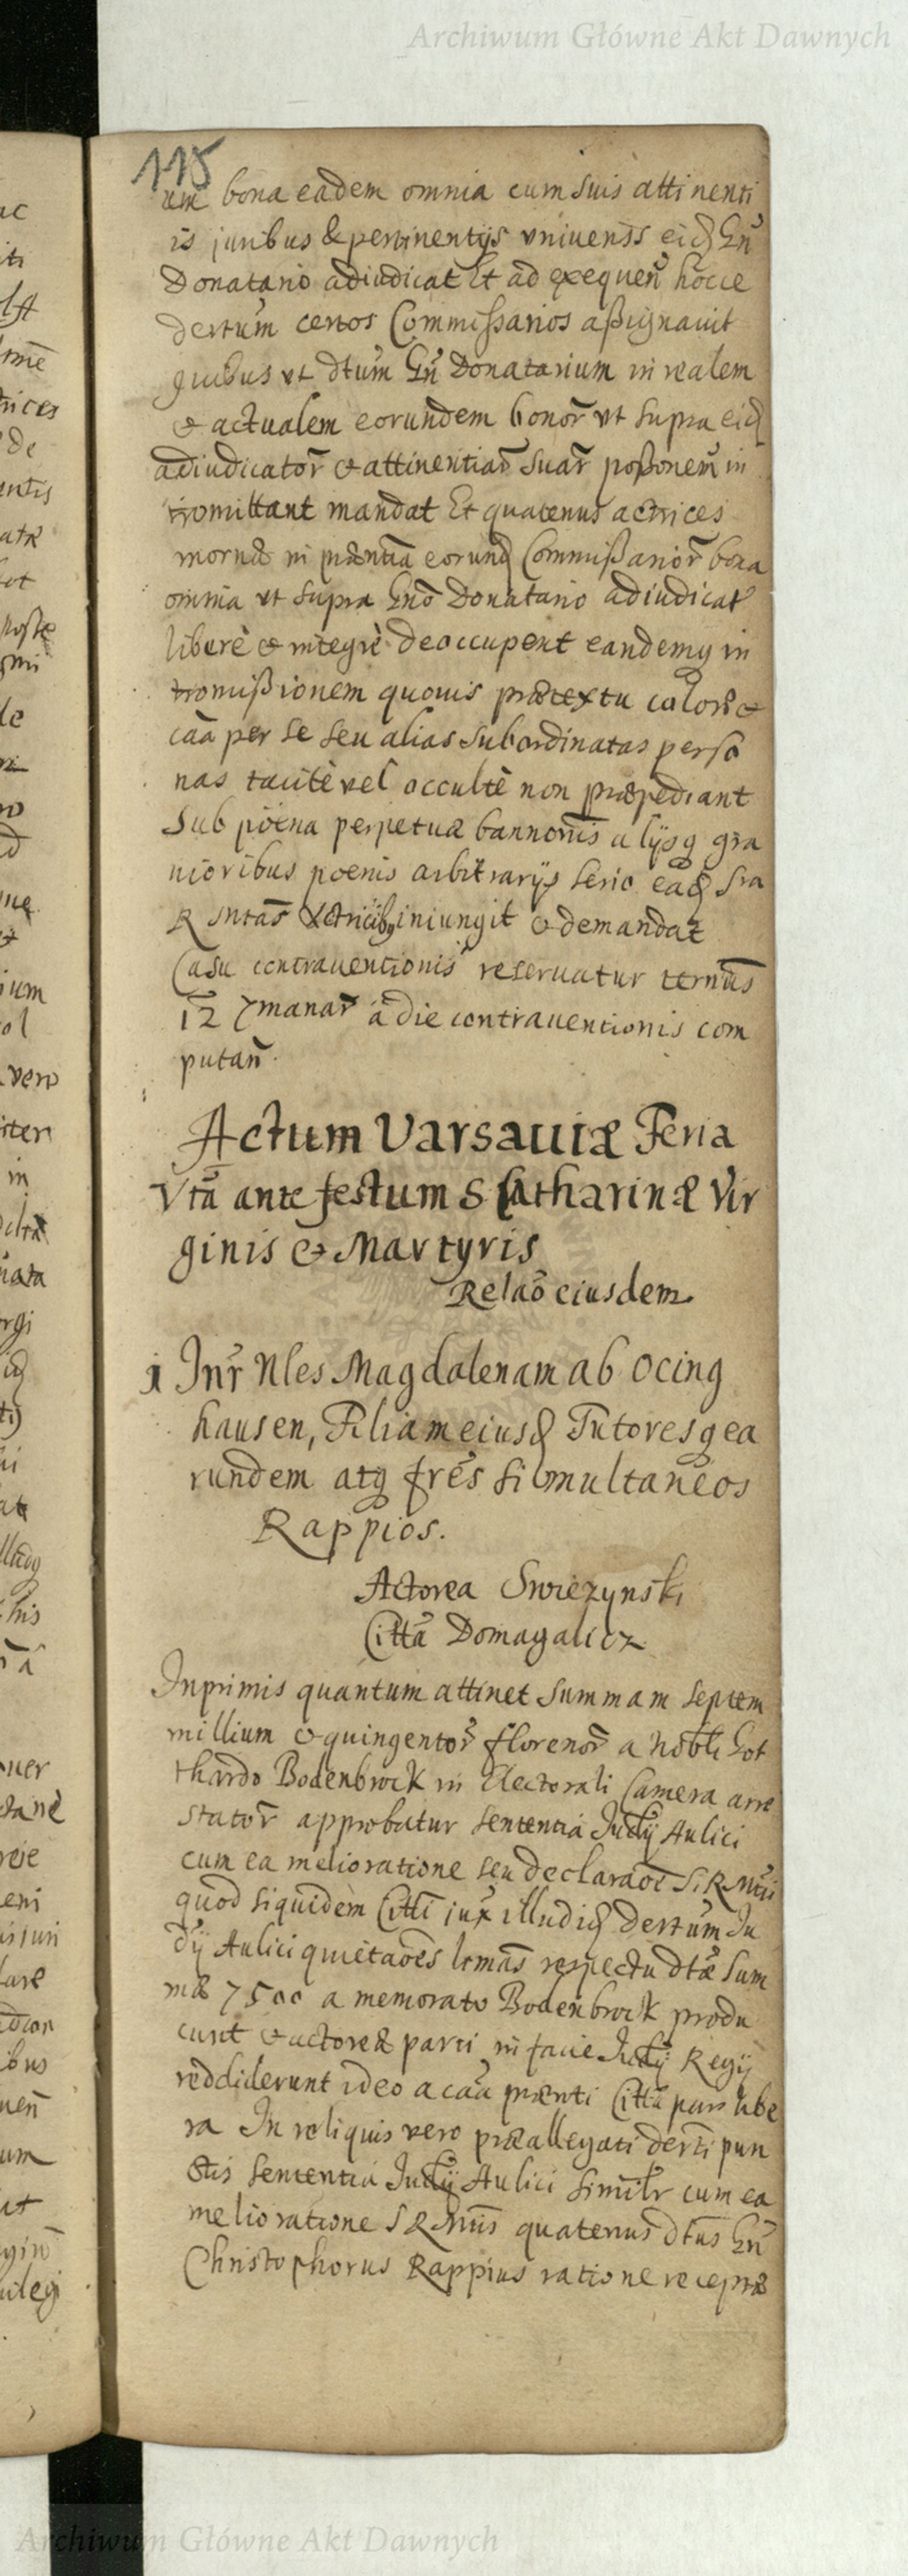 Archiwum Główne Akt Dawnych
115
um bona eadem omnia cum suis attinenti
is juribus & pertinentijs vniuersis eidꝫ Gñ
Donatario adiudicat Et ad exequeñ hocce
dertum certos Commissarios assignauit
quibus vt dtum Gñ Donatarium in realem
& actualem eorundem bonor̃ vt supra eidꝫ
adiudicator̃ & attinentiar̃ suar̃ possionem in
tromittant mandat Et quatenus actrices
mornæ in præntia eorundꝫ Commissarior̃ bona
omnia vt supra Gnõ Donatario adiudicat
liberè & integrè deoccupent eandemq in
tromissionem quouis prætextu colore &
caã per se seu alias subordinatas perso
nas tacitè vel occultè non præpediant
Sub poena perpetuæ bannonis alijsq gra
uioribus poenis arbitrarijs serio eadꝫ Sra
R Mtas Actricibꝫ iniungit & demandat
Casu contrauentionis reseruatur ternus
12 7manar̃ à die contrauentionis com
putañ.
Actum Varsauiæ Feria
Vtã ante festum S Catharinæ Vir
ginis & Martyris
Relaõ eiusdem
1 Inr̃ Nles Magdalenam ab Ocing
hausen, Filiam eiusdꝫ Tutores q ea
rundem atq fres Simultaneos
Rappios.
Actorea Swiezynski
Citta Domagalicz
Inprimis quantum attinet summam septem
millium & quingentor̃ florenor̃ a Nobli Got
thardo Bodenbrock in Electorali Camera arre
stator̃ approbatur sententia Judij Aulici
cum ea melioratione seu declaraõe S R Mtis
quod siquidem Citti jux illud idꝫ dertum Ju
dij Aulici quietaões lrmas respectu dtæ Sum
mæ 7500 a memorato Bodenbrock produ
cunt & actoreæ parti in facie Judij Regij
reddiderunt ideo a caã prænti Citta pars libe
ra In reliquis vero præallegati derti pun
ctis sententia Judij Aulici similr cum ea
melioratione S R Mtis quatenus dtus Gñ
Christophorus Rappius ratione receptæ
Archiwum Główne Akt Dawnych